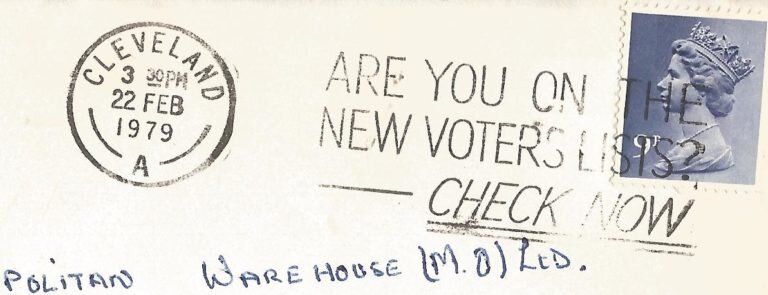 CLEVELAND
3 30PM
22 FEB
1979
A
ARE YOU ON THE
NEW VOTERS LISTS?
CHECK NOW
9P
POLITAN WAREHOUSE (M.O) LTD.